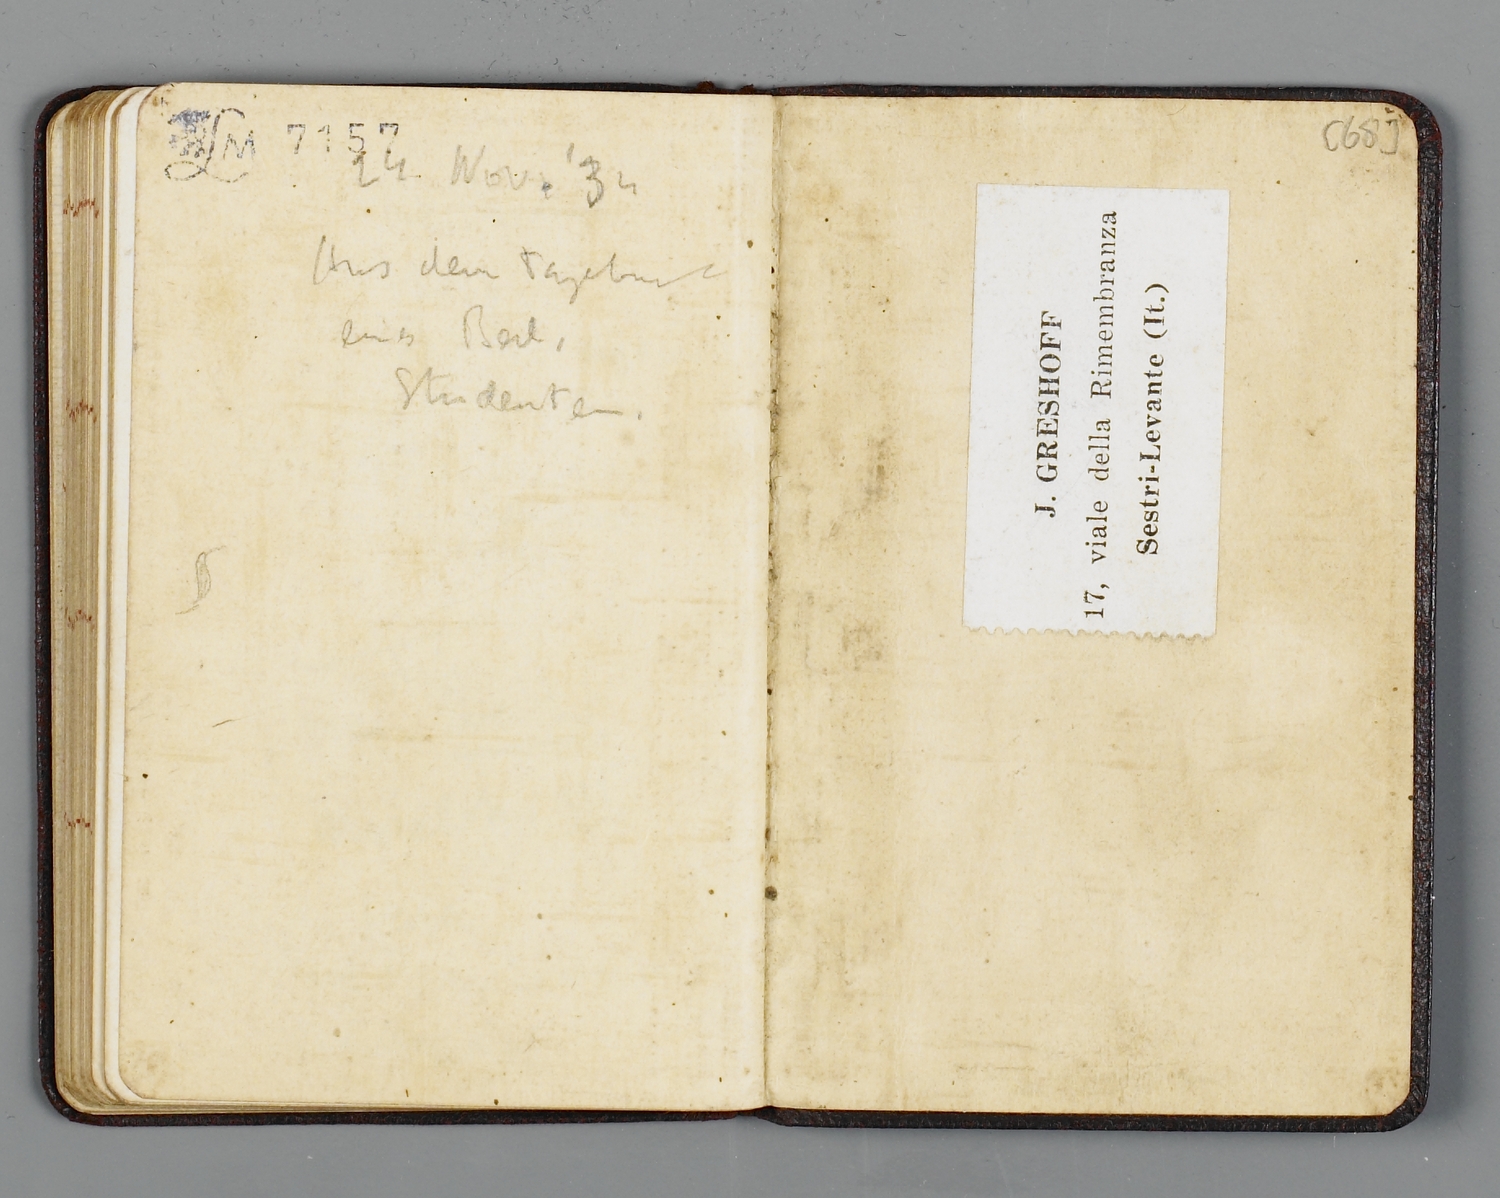 LM 7157
24 Nov. '34
Aus dem Tagebuch
eines Berl.
Studenten.
[68]
J. GRESHOFF
17, viale della Rimembranza
Sestri-Levante (It.)